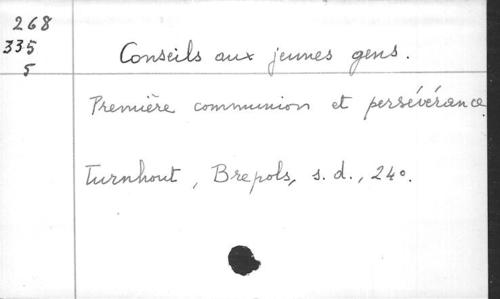 268
335
5
Conseils aux jeunes gens.
Première communion et persévérance
Turnhout, Brepols, s. d., 24°.